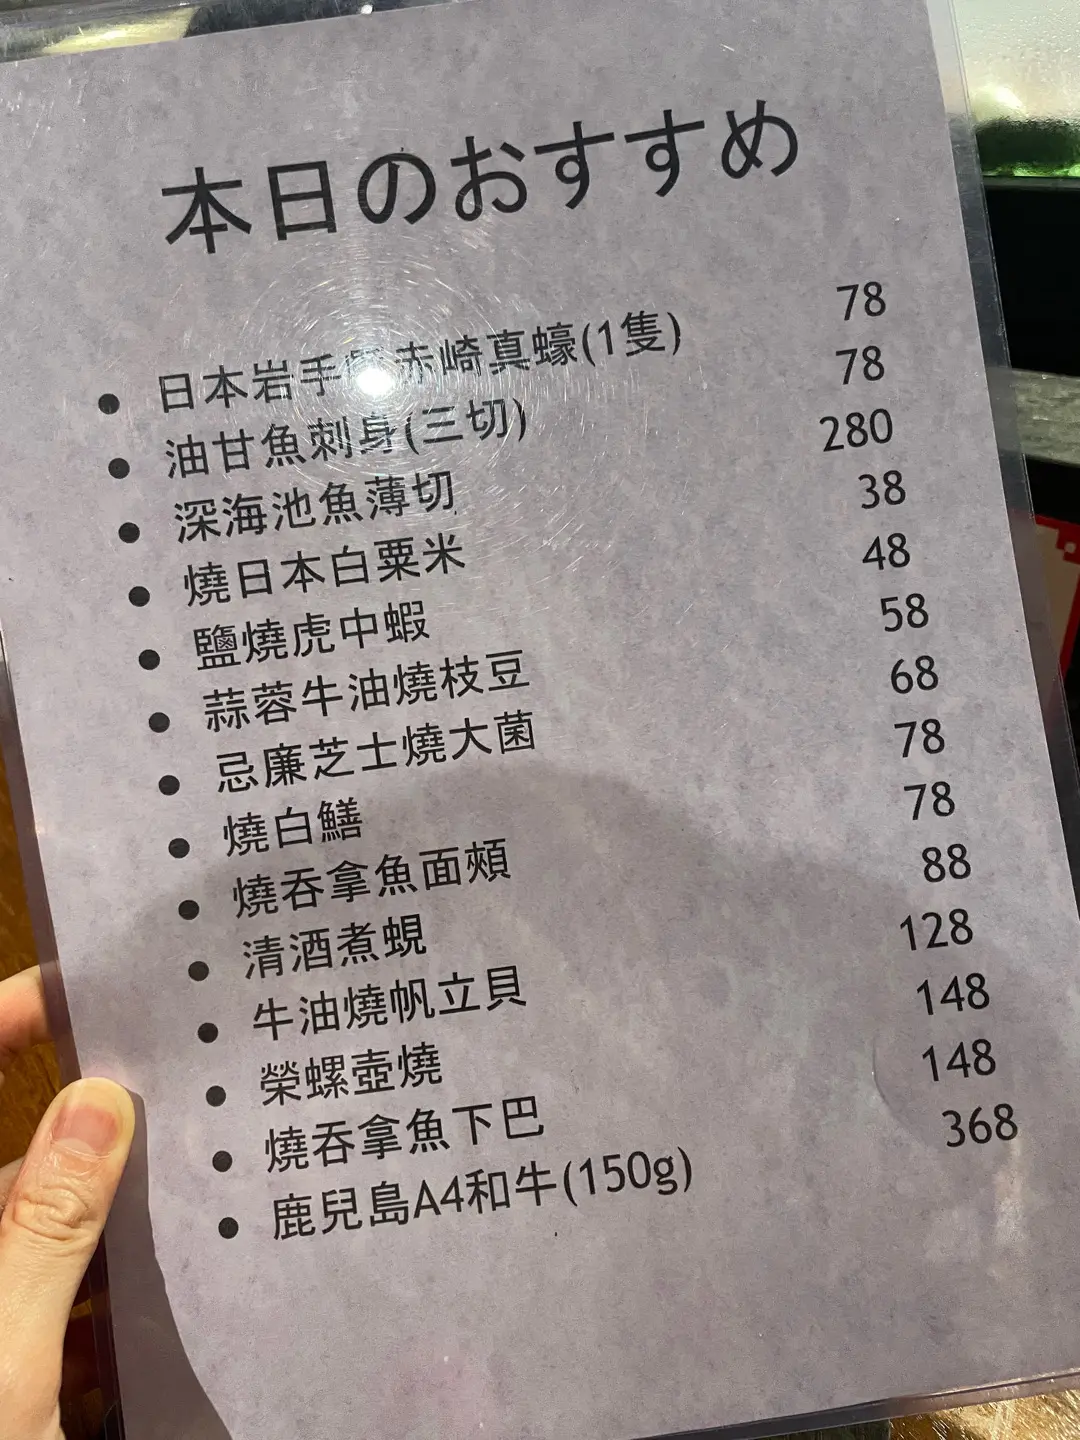 本日のおすすめ
• 日本岩手 赤崎真蠔(1隻) 78
• 油甘魚刺身(三切) 78
• 深海池魚薄切 280
• 燒日本白粟米 38
• 鹽燒虎中蝦 48
• 蒜蓉牛油燒枝豆 58
• 忌廉芝士燒大菌 68
• 燒白鱔 78
• 燒吞拿魚面頰 78
• 清酒煮蜆 88
• 牛油燒帆立貝 128
• 榮螺壺燒 148
• 燒吞拿魚下巴 148
• 鹿兒島A4和牛(150g) 368